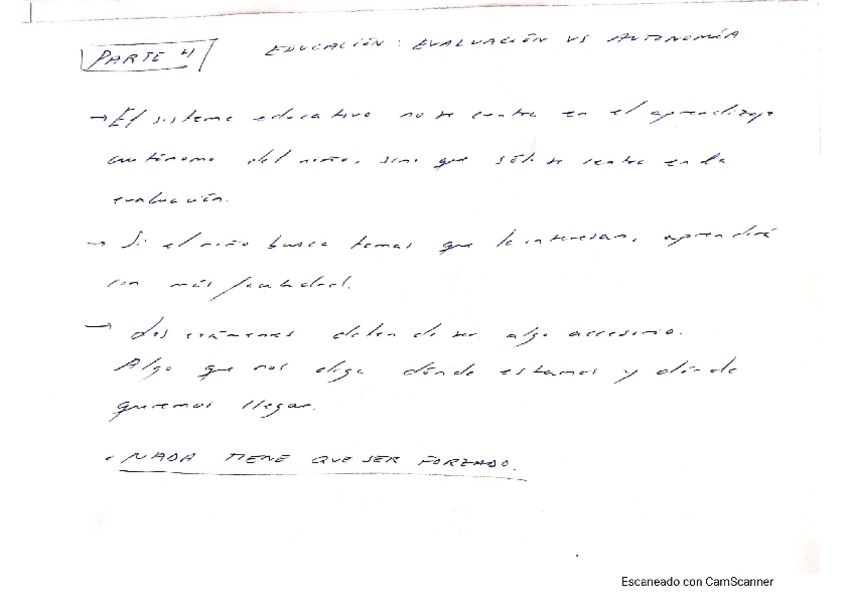 PARTE 4
EDUCACIÓN: EVALUACIÓN VS AUTONOMÍA
→ El sistema educativo no se centra en el aprendizaje
autónomo del niño, sino que sólo se centra en la
evaluación.
→ Si el niño busca temas que le interesan, aprenderá
con más facilidad.
→ Los exámenes deben de ser algo accesorio.
Algo que nos diga dónde estamos y dónde
queremos llegar.
• NADA TIENE QUE SER FORZADO.
Escaneado con CamScanner